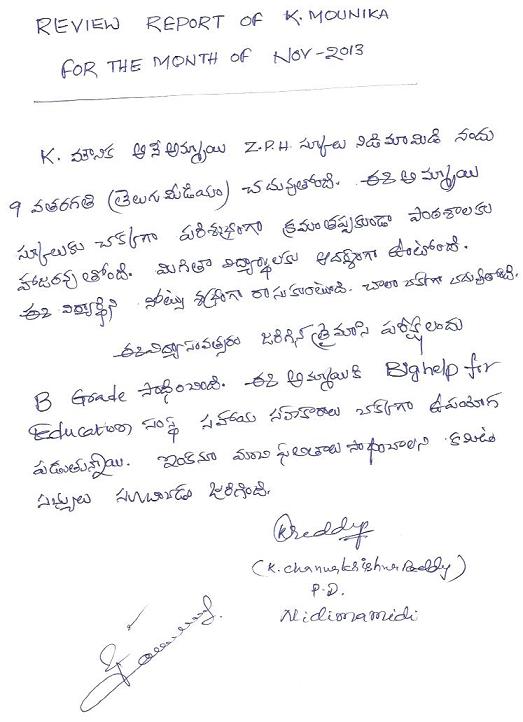 REVIEW REPORT OF K. MOUNIKA
FOR THE MONTH OF NOV-2013
K. మౌనిక అనే అమ్మాయి Z.P.H. స్కూలు నిడిమామిడి నందు
9 వతరగతి (తెలుగు మీడియం) చదువుతోంది. ఈ అమ్మాయి
స్కూలుకు చక్కగా పరిశుభ్రంగా క్రమంతప్పకుండా పాఠశాలకు
హాజరవుతోంది. మిగితా విద్యార్థులకు ఆదర్శంగా ఉంటోంది.
ఈ విద్యార్థిని నోట్సు శుభ్రంగా రాసుకుంటుంది. చాలా చక్కగా చదువుతోంది.
ఈ విద్యాసంవత్సరం జరిగిన త్రైమాసి పరీక్షలందు
B Grade సాధించింది. ఈ అమ్మాయికి Bighelp for
Education సంస్థ సహాయ సహకారాలు చక్కగా ఉపయోగ
పడుతున్నాయి. ఇంకనూ మంచి ఫలితాలు సాధించాలని కమిటి
సభ్యులు జరిగింది.
KReddy
(K. Chennakrishna Reddy)
P.D.
Nidimamidi